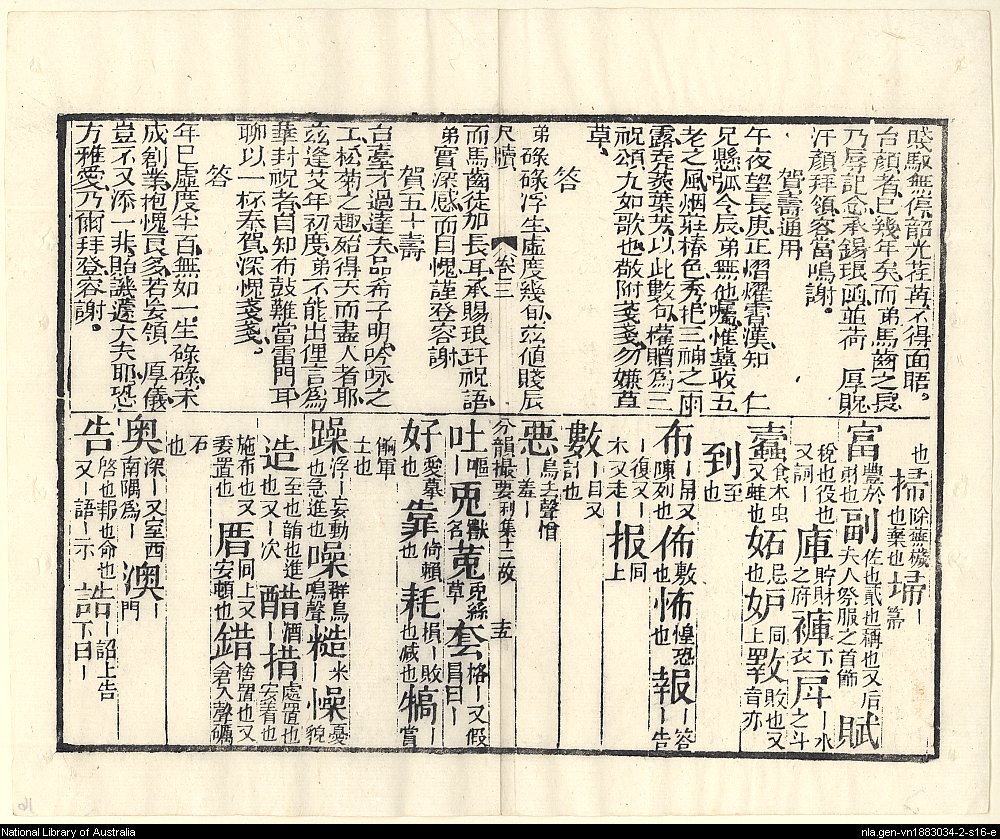 馭無停韶光荏苒不得面晤。
台顏者、已幾年矣、而弟馬齒之長
乃辱記念、承錫琅函、並荷 厚貺
汗顏拜領、容當鳴謝。
賀壽通用
午夜望長庚、正熠燿霄漢、知 仁
兄懸弧令辰、弟無他囑、惟冀收五
老之風烟、莊椿色秀、挹三神之雨
露、蓂莢葉芳、以此數句、權贈為三
祝、頌九如歌也、敬附戔戔、勿嫌苴
草、
答
弟碌碌浮生、虛度幾旬、茲值賤辰
尺牘 卷三
而馬齒徒加長耳、承賜琅玕祝語
弟實深感而自愧、謹登容謝
賀五十壽
台臺才過達夫、品希子明、吟咏之
工、松菊之趣、殆得天而盡人者耶
茲逢艾年初度、弟不能出俚言為
華封祝者、自知布鼓難當雷門耳
聊以一杯奉賀、深愧戔戔。
答
年已虛度半百、無如一生碌碌、未
成創業、抱愧良多、若妄領 厚儀
豈不又添一非、貽譏蘧大夫耶、恐
方雅愛、乃爾拜登、容謝。
也 掃除塵穢也棄也 埽
富豐於財也 副佐也貳也稱也又后夫人祭服之首飾 賦
稅也役也又詞也 庫貯財之府 褲下衣 戽丨水之斗
蠹食木虫又蛀也 妬忌也 妒同上 斁敗也又音亦
到至也
布丨帛又陳列也 佈敷也 怖惶恐也 報丨答丨告
丨復又丨木又走丨 报同上
數丨目又計也
惡去聲憎丨羞丨
分韻撮要利集二故 十五
吐嘔丨 兎獸名 菟兎絲草 套格丨又假冒曰丨
好愛摹也 靠倚賴也 耗損丨敗也减也 犒丨賞
餉軍士也
躁浮丨妄動也急進也 噪群鳥鳴聲 糙米丨 懆憂貌
造至也詣也進也又丨次 醋酒丨 措處置也安着也
施布也又委置也 厝同上又安頓也 錯捨置也又倉入聲礪
石也
奧深丨又室西南隅為丨 澳丨門
告啓也報也命也又丨語丨示 誥丨詔上告下曰丨
National Library of Australia
nla.gen-vn1883034-2-s16-e